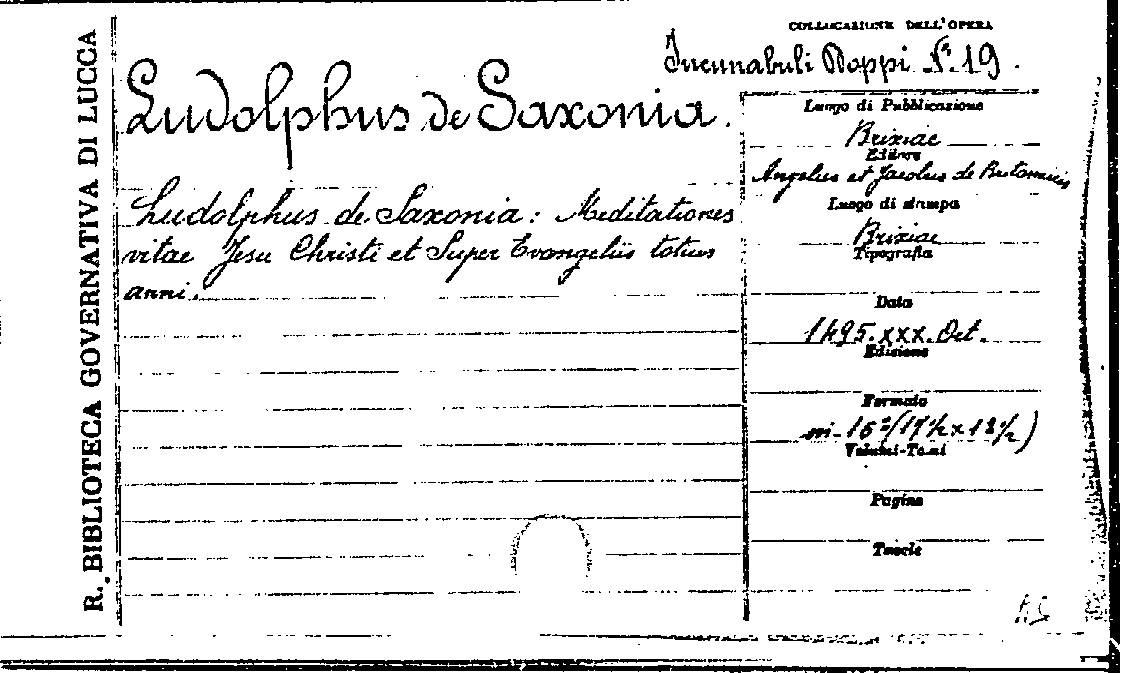 R. BIBLIOTECA GOVERNATIVA DI LUCCA
COLLOCAZIONE DELL'OPERA
Incunabuli Doppi N.º 19.
Ludolphus de Saxonia.
Ludolphus de Saxonia: Meditationes
vitae Jesu Christi et Super Evangeliis totius
anni.
Luogo di Pubblicazione
Brixiae
Editore
Angelus et Jacobus de Britannicis
Luogo di stampa
Brixiae
Tipografia
Data
1495.xxx.Oct.
Edizione
Formato
in-16º (17½ x 12½)
Volumi-Tomi
Pagine
Tavole